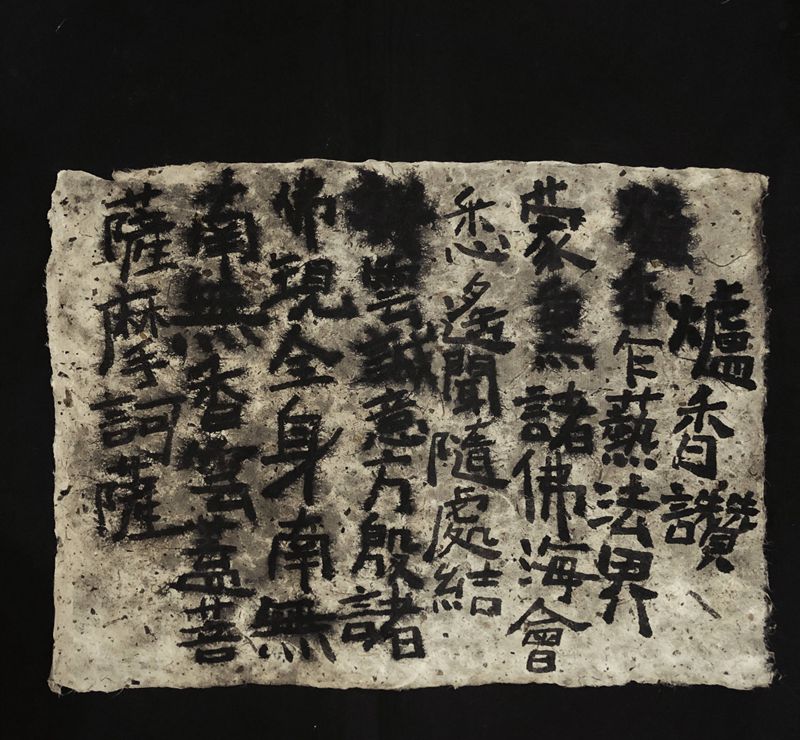 爐香讚
爐香乍爇法界
蒙熏諸佛海會
悉遙聞隨處結
雲誠意方殷諸
佛現全身南無
南無香雲蓋菩
薩摩訶薩